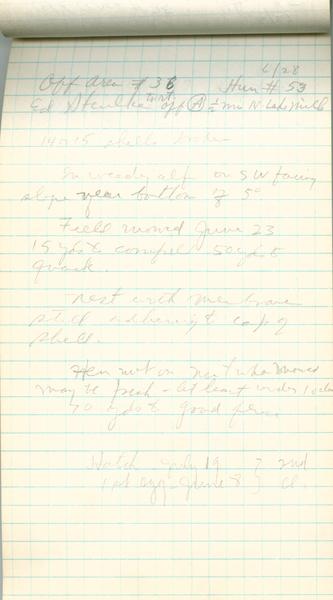 6/28
Off Area # 36 Hen # 53
Ed off (A) ½ mi N. Lake Mills
14 or 15 shells
In weedy alf on SW facing
slope near bottom 5°
Field mowed June 23
15 yds to 50 yds to
quack.
Nest with membranes
still adhering to cap of
shell.
Hen not on nest when mowed
may be fresh - at least under 1
70 yds to good
Hatch July 19 } 2nd
1st egg - June 8 } cl.